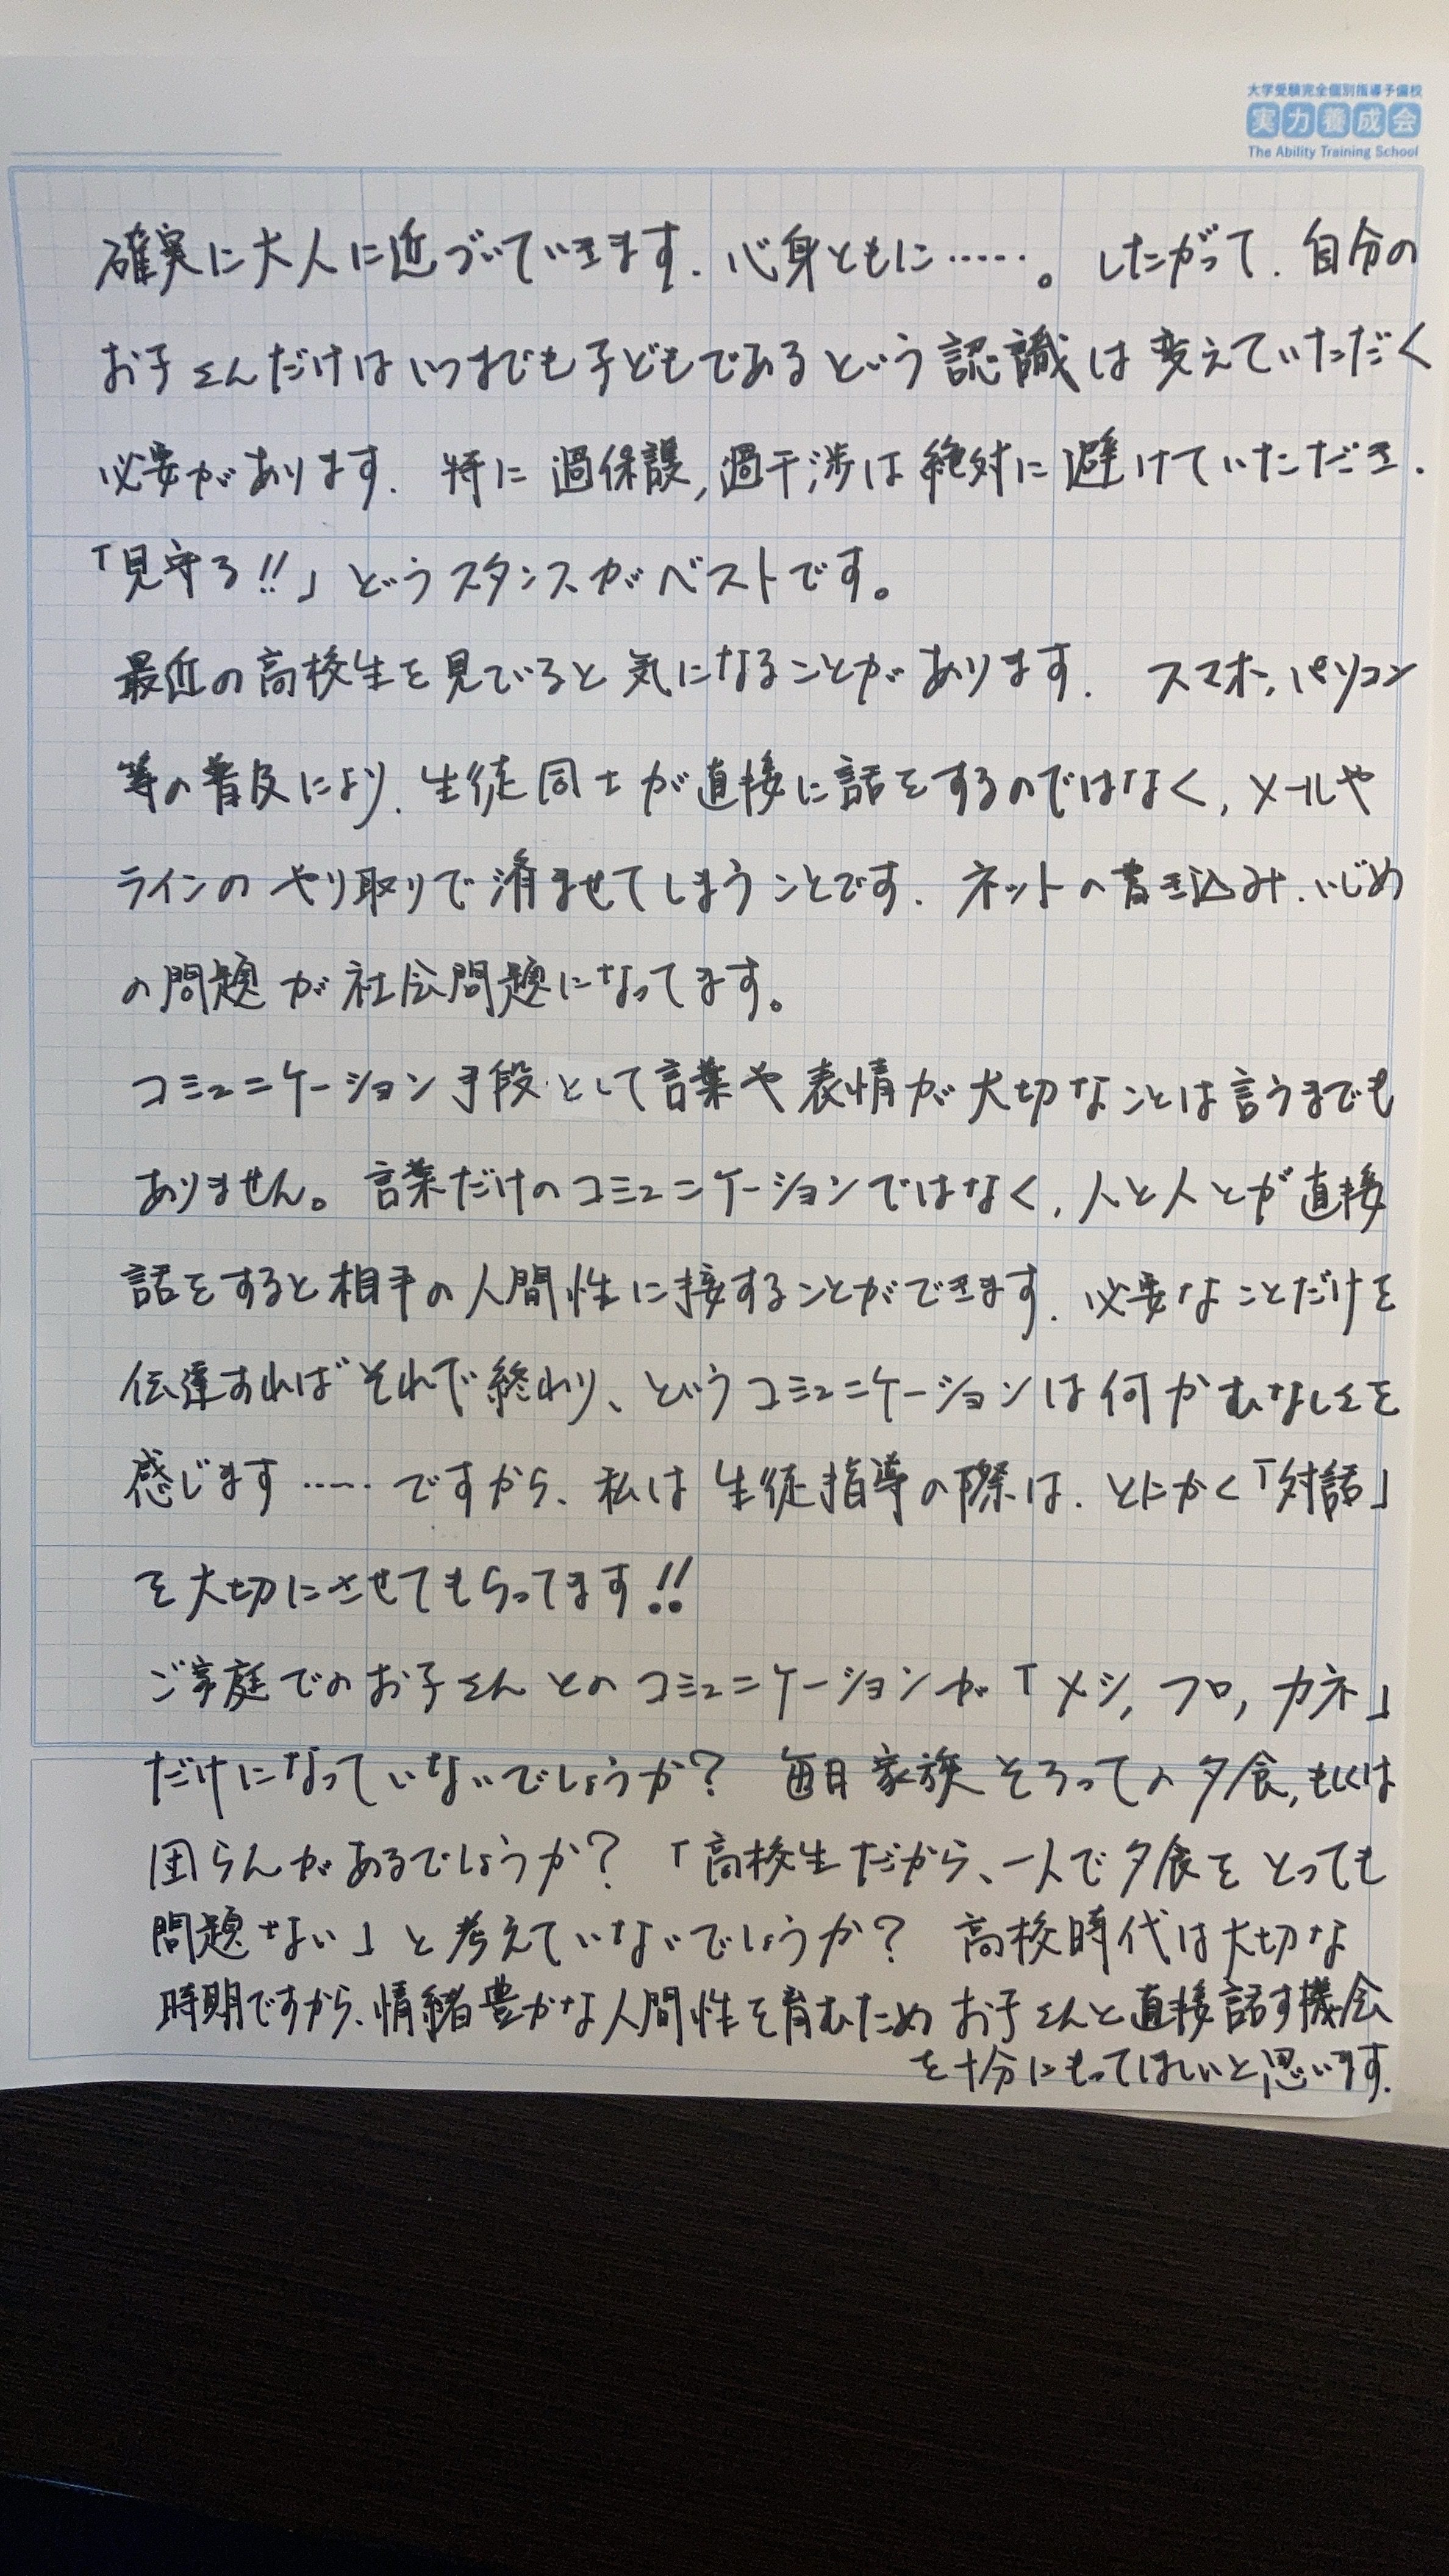 大学受験完全個別指導予備校
実力養成会
The Ability Training School
確実に大人に近づいていきます、心身ともに……。したがって、自分の
お子さんだけはいつまでも子どもであるという認識は変えていただく
必要があります。特に過保護,過干渉は絶対に避けていただき、
「見守る!!」というスタンスがベストです。
最近の高校生を見ていると気になることがあります。スマホ,パソコン
等の普及により、生徒同士が直接に話をするのではなく,メールや
ラインのやり取りで済ませてしまうことです。ネットの書き込み、いじめ
の問題が社会問題になってます。
コミュニケーション手段として言葉や表情が大切なことは言うまでも
ありません。言葉だけのコミュニケーションではなく,人と人とが直接
話をすると相手の人間性に接することができます。必要なことだけを
伝達すればそれで終わり、というコミュニケーションは何かむなしさを
感じます……ですから、私は生徒指導の際は、とにかく「対話」
を大切にさせてもらってます!!
ご家庭でのお子さんとのコミュニケーションが「メシ,フロ,カネ」
だけになっていないでしょうか?毎日家族そろっての夕食,もしくは
団らんがあるでしょうか?「高校生だから、一人で夕食をとっても
問題ない」と考えていないでしょうか?高校時代は大切な
時期ですから、情緒豊かな人間性を育むためお子さんと直接話す機会
を十分にもってほしいと思います。